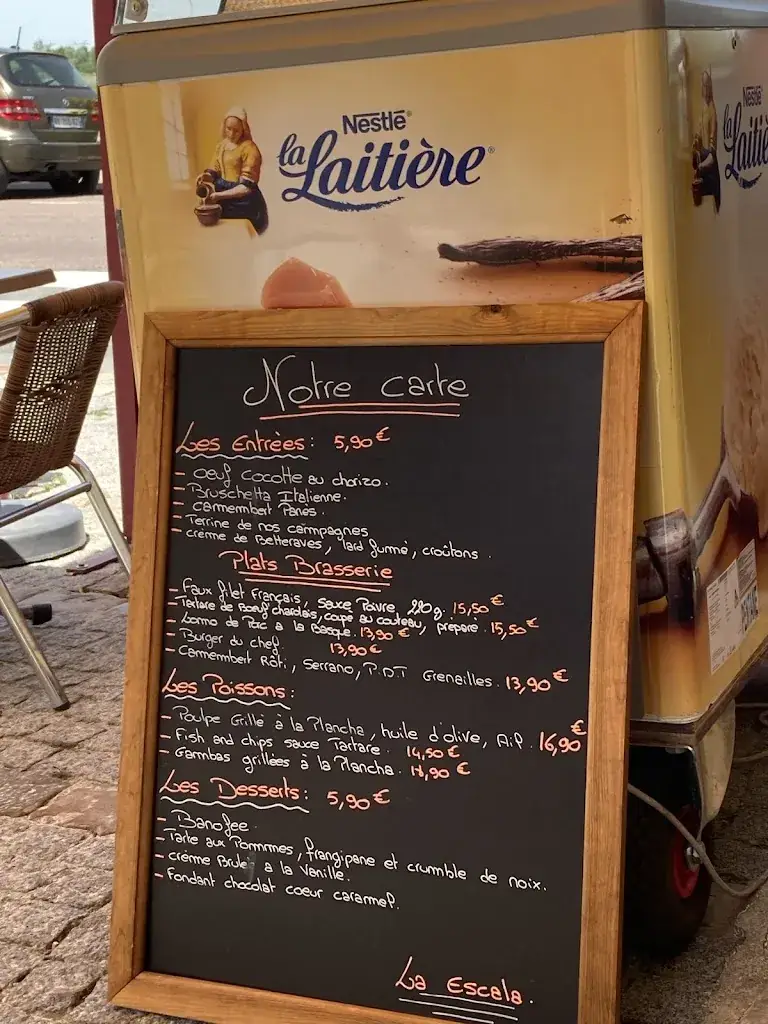 Nestlé
la Laitière
Nestlé
Notre carte
Les Entrées: 5,90€
- oeuf cocotte au chorizo.
- Bruschetta Italienne.
- Camembert Panés.
- Terrine de nos campagnes
- crème de Betteraves, lard fumé, croûtons.
Plats Brasserie
- Faux filet Français, sauce Poivre, 220g. 15,50€
- Tartare de Boeuf charolais, coupé au couteau, préparé. 15,50€
- Lomo de Porc a la Basque. 13,90€
- Burger du chef. 13,90€
- Cammembert Rôti, Serrano, P.D.T Grenailles. 13,90€
Les Poissons:
- Poulpe Grillé à la Plancha, huile d'olive, Ail. 16,90€
- Fish and chips sauce Tartare. 14,50€
- Gambas grillées à la Plancha.
Les Desserts: 5,90€
- Banofee.
- Tarte aux Pommmes, frangipane et crumble de noix.
- crème Brulé a la Vanille.
- Fondant chocolat coeur caramel.
La Escala.